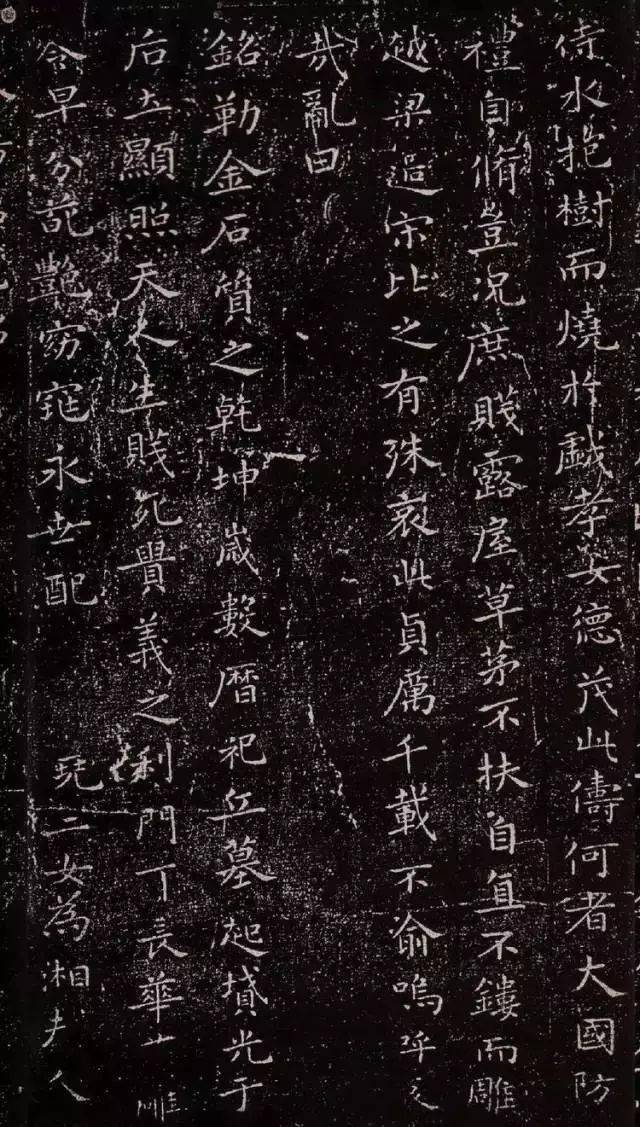 待水抱樹而燒於戲孝女德茂此儔何者大國防
禮自脩豈況庶賤露屋草茅不扶自直不鏤而雕
越梁過宋比之有殊哀此貞厲千載不渝嗚呼哀
哉亂曰
銘勒金石質之乾坤歲數曆祀丘墓起墳光于
后土顯照天人生賤死貴義之利門 長華 雕
早分葩艷窈窕永世配 堯二女為湘夫人